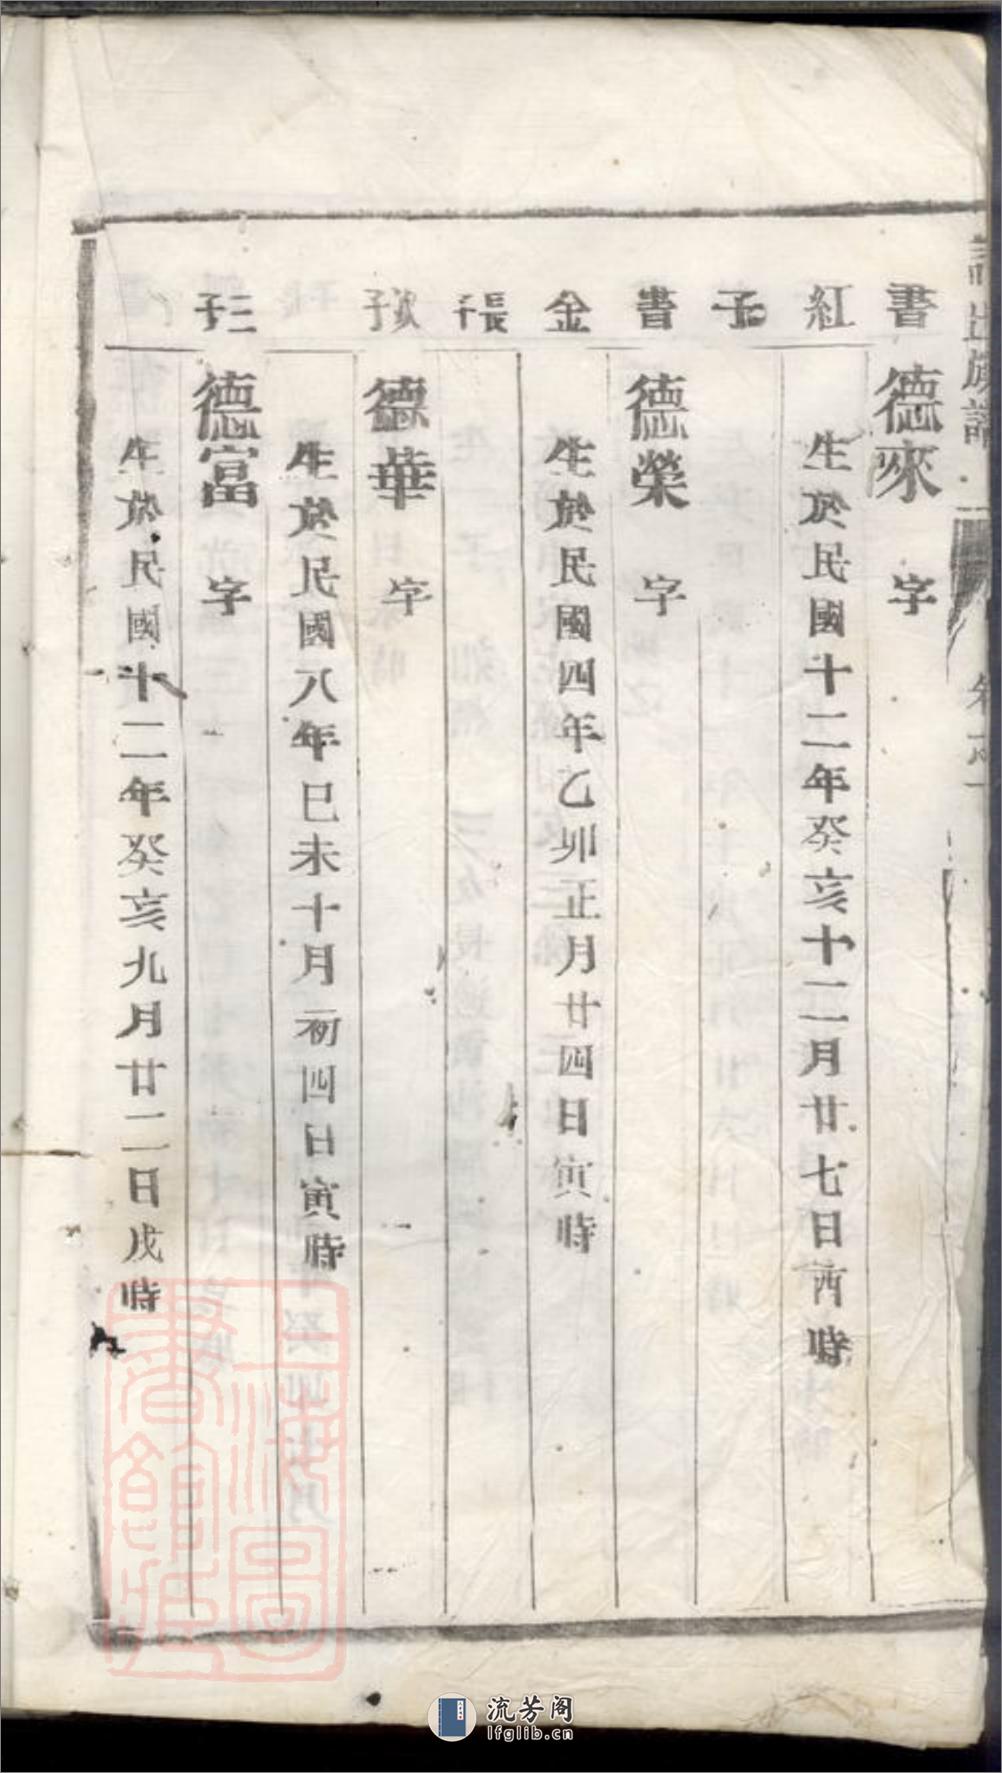 書 德來 字
紅 生於民國十二年癸亥十二月廿七日酉時
子
書 德榮 字
金 生於民國四年乙卯正月廿四日寅時
長子
次子 德華 字
生於民國八年已未十月初四日寅時
三子 德富 字
生於民國十二年癸亥九月廿二日戌時
上海圖
書館藏
流芳阁
lfglib.cn